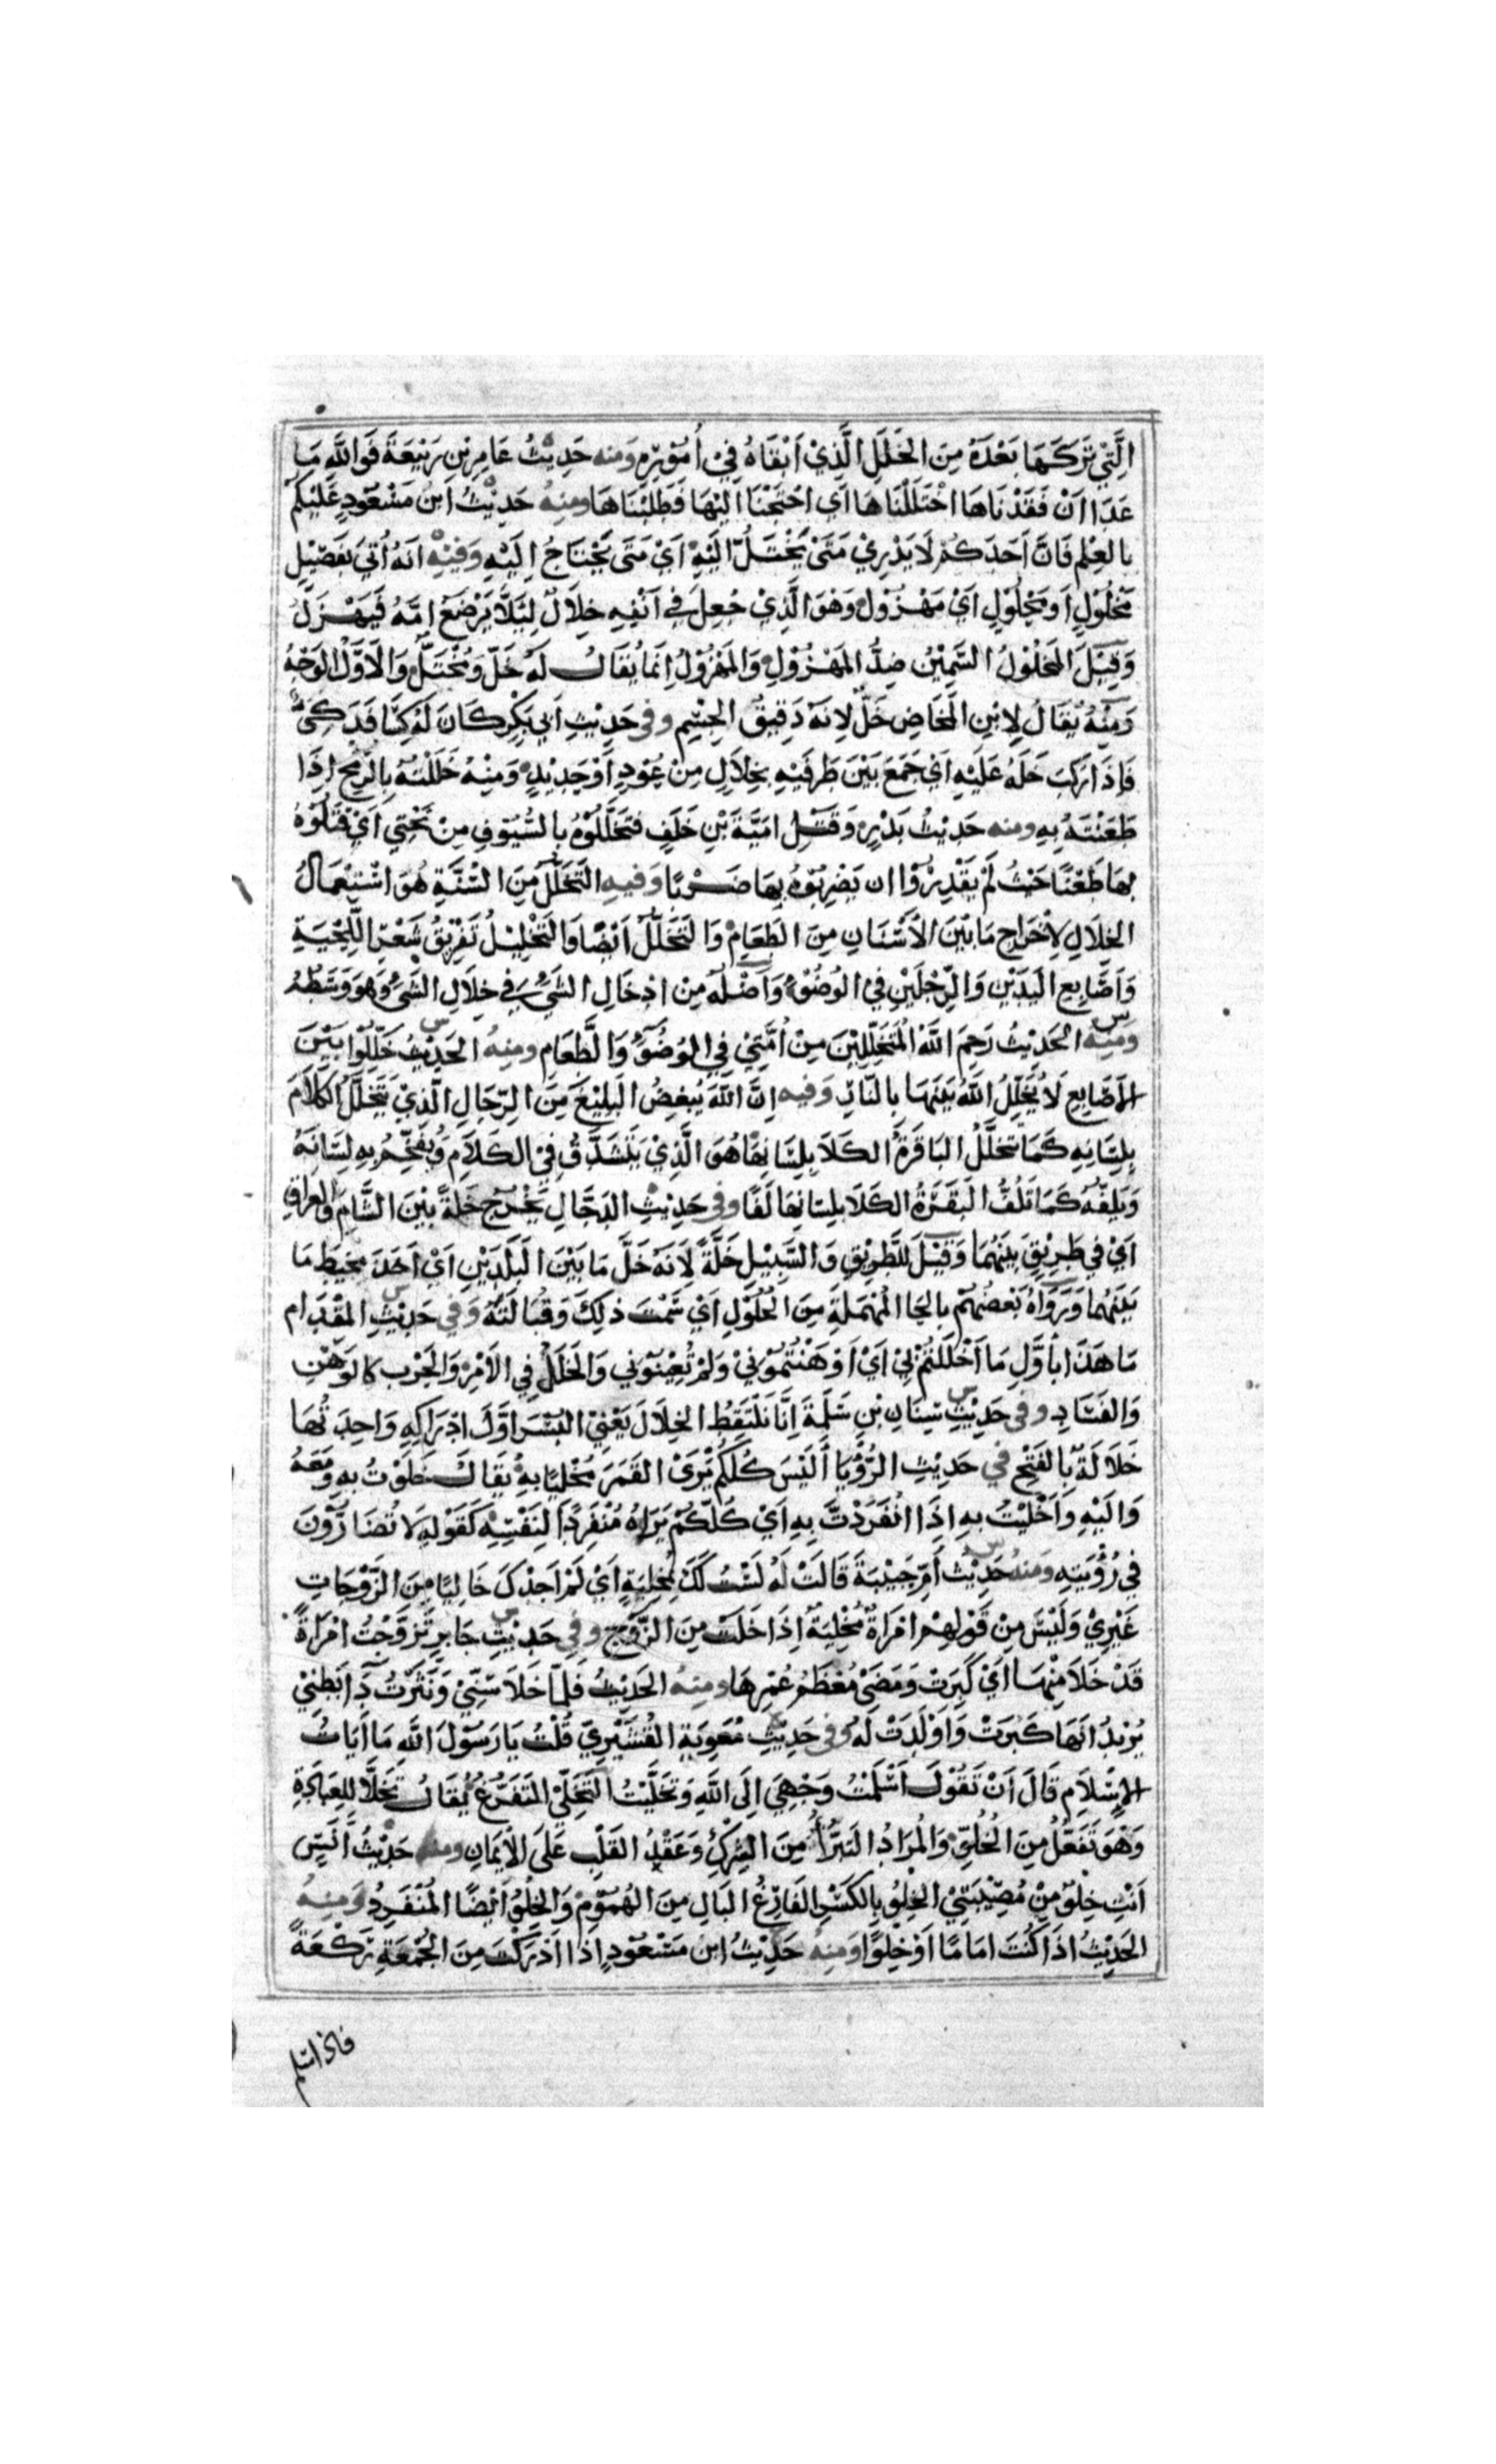 الَّتِيْ تَرَكَهَا بَعْدَهُ مِنَ الخَلَلِ الَّذِيْ اَبْقَاهُ فِيْ اُمُوْرِهِ وَمنه حَدِيْثُ عَامِرِ بْنِ رَبِيْعَةَ فَوَاللَّهِ مَا
عَدَا اَنْ فَقَدْنَاهَا اخْتَلَلْنَاهَا اَي احْتَجْنَا اِلَيْهَا فَطَلَبْنَاهَا ومِنهُ حَدِيْثُ ابْنِ مَسْعُوْدٍ عَلَيْكُمْ
بِالعِلْمِ فَاِنَّ اَحَدَكُمْ لَا يَدْرِيْ مَتَىْ يُخْتَلُّ اِلَيْهِ اَيْ مَتَى يُحْتَاجُ اِلَيْهِ وَفيْهِ اَنَّهُ اُتِيَ بِفَصِيْلٍ
مَخْلُوْلٍ اَوْ مَحْلُوْلٍ اَيْ مَهْزُوْلٍ وَهْوَ الَّذِيْ جُعِلَ فِي اَنْفِهِ خِلَالٌ لِئَلَّا يَرْضَعَ اُمَّهُ فَيَهْزَلُ
وَقِيْلَ المَخْلُوْلُ السَّمِيْنُ ضِدُّ المَهْزُوْلِ وَالمَهْزُوْلُ اِنَّمَا يُقَالُ لَهُ خَلّ وَمُخْتَلّ وَالاَوَّلُ الوَجْهُ
وَمِنْهُ يُقَالُ لِابْنِ المَخَاضِ خَلٌّ لِاَنَّهُ دَقِيْقُ الجِسْمِ وفى حَدِيْثِ اَبِي بَكْرٍ كَانَ لَهُ كِسَا فَدَكِيٌّ
فَاِذَا رَكِبَ خَلَّهُ عَلَيْهِ اَيْ جَمَعَ بَيْنَ طَرَفَيْهِ بِخِلَالٍ مِنْ عُوْدٍ اَوْ حَدِيْدٍ وَمِنْهُ خَلَلْتُهُ بِالرُّمْحِ اِذَا
طَعَنْتَهُ بِهِ ومنه حَدِيْثُ بَدْرٍ وَقَتْلِ اُمَيَّةَ بْنِ خَلَفٍ فَتَخَلَّلُوْهُ بِالسُّيُوْفِ مِنْ تَحْتِي اَيْ قَتَلُوْهُ
بِهَا طَعْنًا حَيْثُ لَمْ يَقْدِرُوْا ان يَضْرِبُوْهُ بِهَا ضَرْبًا وَفيهِ التَّخَلُّلُ مِنَ السُّنَّةِ هُوَ اسْتِعْمَالُ
الخِلَالِ لِاِخْرَاجِ مَا بَيْنَ الاَسْنَانِ مِنَ الطَّعَامِ وَالتَّخَلُّلُ اَيْضًا وَالتَّخْلِيْلُ تَفْرِيْقُ شَعْرِ اللِّحْيَةِ
وَاَصَابِعِ اليَدَيْنِ وَالرِّجْلَيْنِ فِي الوُضُوْءِ وَاَصْلُهُ مِنْ اِدْخَالِ الشَّيْءِ فِي خِلَالِ الشَّيْءِ وَهُوَ وَسَطُهُ
وَمِنْهُ الحَدِيْثُ رَحِمَ اللَّهُ المُتَخَلِّلِيْنَ مِنْ اُمَّتِيْ فِي الوُضُوْءِ وَالطَّعَامِ ومِنهُ الحَدِيْثُ خَلِّلُوْا بَيْنَ
الاَصَابِعِ لَا يُخَلِّلُ اللَّهُ بَيْنَهَا بِالنَّارِ وَفيه اِنَّ اللَّهَ يُبْغِضُ البَلِيْغَ مِنَ الرِّجَالِ الَّذِيْ يَتَخَلَّلُ الكَلَامَ
بِلِسَانِهِ كَمَا تَتَخَلَّلُ البَاقِرَةُ الكَلَا بِلِسَانِهَا هُوَ الَّذِيْ يَتَشَدَّقُ فِي الكَلَامِ وَيُفَخِّمُ بِهِ لِسَانَهُ
وَيَلُفُّهُ كَمَا تَلُفُّ البَقَرَةُ الكَلَا بِلِسَانِهَا لَفًّا وفى حَدِيْثِ الدَّجَّالِ يَخْرُجُ خَلَّةً بَيْنَ الشَّامِ وَالعِرَاقِ
اَيْ فِي طَرِيْقٍ بَيْنَهُمَا وَقِيْلَ لِلطَّرِيْقِ وَالسَّبِيْلِ خَلَّةٌ لِاَنَّهُ خَلَّ مَا بَيْنَ البَلَدَيْنِ اَيْ اَخَذَ مَخِيطَ مَا
بَيْنَهُمَا وَرَوَاهُ بَعْضُهُمْ بِالحَا المُهْمَلَةِ مِنَ الحُلُوْلِ اَيْ سَمْتَ ذَلِكَ وَقُبَالَتَهُ وَفي حَدِيْثِ المِقْدَامِ
مَا هَذَا بِاَوَّلِ مَا اَخْلَلْتُمْ لِيْ اَيْ اَوْهَنْتُمُوْنِيْ وَلَمْ تُعِيْنُوْنِي وَالخَلَلُ فِي الاَمْرِ وَالحَرْبِ كَالوَهْنِ
وَالفَسَادِ وفى حَدِيْثِ سِنَانِ بْنِ سَلَمَةَ اِنَّا نَلْتَقِطُ الخَلَالَ يَعْنِيْ البُسْرَ اَوَّلَ اِدْرَاكِهِ وَاحِدَتُهَا
خَلَالَةٌ بِالفَتْحِ فى حَدِيْثِ الرُّؤْيَا أَلَيْسَ كُلُّكُمْ يَرَىْ القَمَرَ مُخْلِيًا بِهِ يُقَالُ خَلَوْتُ بِهِ وَمَعَهُ
وَاِلَيْهِ وَاَخْلَيْتُ بِهِ اِذَا انْفَرَدْتَ بِهِ اَيْ كُلُّكُمْ يَرَاهُ مُنْفَرِدًا لِنَفْسِهِ كَقَوْلِهِ لَا تُضَارُّوْنَ
فِي رُؤْيَتِهِ وَمنهُ حَدِيْثُ اُمِّ حَبِيْبَةَ قَالَتْ لَهُ لَسْتُ لَكَ بِمُخْلِيَةٍ اَيْ لَمْ اَجِدْكَ خَالِيًا مِنَ الزَّوْجَاتِ
غَيْرِيْ وَلَيْسَ مِنْ قَوْلِهِمْ امْرَاَةٌ مُخْلِيَةٌ اِذَا خَلَتْ مِنَ الزَّوْجِ وفى حَدِيْثِ جَابِرٍ تَزَوَّجْتُ امْرَاَةً
قَدْ خَلَا مِنْهَا اَيْ كَبِرَتْ وَمَضَىْ مُعْظَمُ عُمْرِهَا ومِنهُ الحَدِيْثُ فَلَمَّا خَلَا سِنِّيْ وَنَثَرْتُ ذَا بَطْنِيْ
يُرِيْدُ اَنَّهَا كَبُرَتْ وَاَوْلَدَتْ لَهُ وفى حَدِيْثِ مُعَوِيَةَ القُشَيْرِيِّ قُلْتُ يَا رَسُوْلَ اللَّهِ مَا اَيَاتُ
الاِسْلَامِ قَالَ اَنْ تَقُوْلَ اَسْلَمْتُ وَجْهِيَ اِلَى اللَّهِ وَتَخَلَّيْتُ التَّخَلِّيْ التَّفَرُّغُ يُقَالُ تَخَلَّا لِلعِبَادَةِ
وَهُوَ تَفَعُّلٌ مِنَ الخُلُوِّ وَالمُرَادُ التَّبَرُّأُ مِنَ الشِّرْكِ وَعَقْدُ القَلْبِ عَلَى الاِيْمَانِ ومنه حَدِيْثُ اَنَسٍ
اَنْتَ خِلْوٌ مِنْ مُصِيْبَتِيْ الخِلْوُ بِالكَسْرِ الفَارِغُ البَالِ مِنَ الهُمُوْمِ وَالخِلْوُ اَيْضًا المُنْفَرِدُ وَمِنهُ
الحَدِيْثُ اِذَا كُنْتَ اِمَامًا اَوْ خِلْوًا وَمِنهُ حَدِيْثُ ابْنِ مَسْعُوْدٍ اِذَا اَدْرَكْتَ مِنَ الجُمُعَةِ رَكْعَةً
فاذا سلم